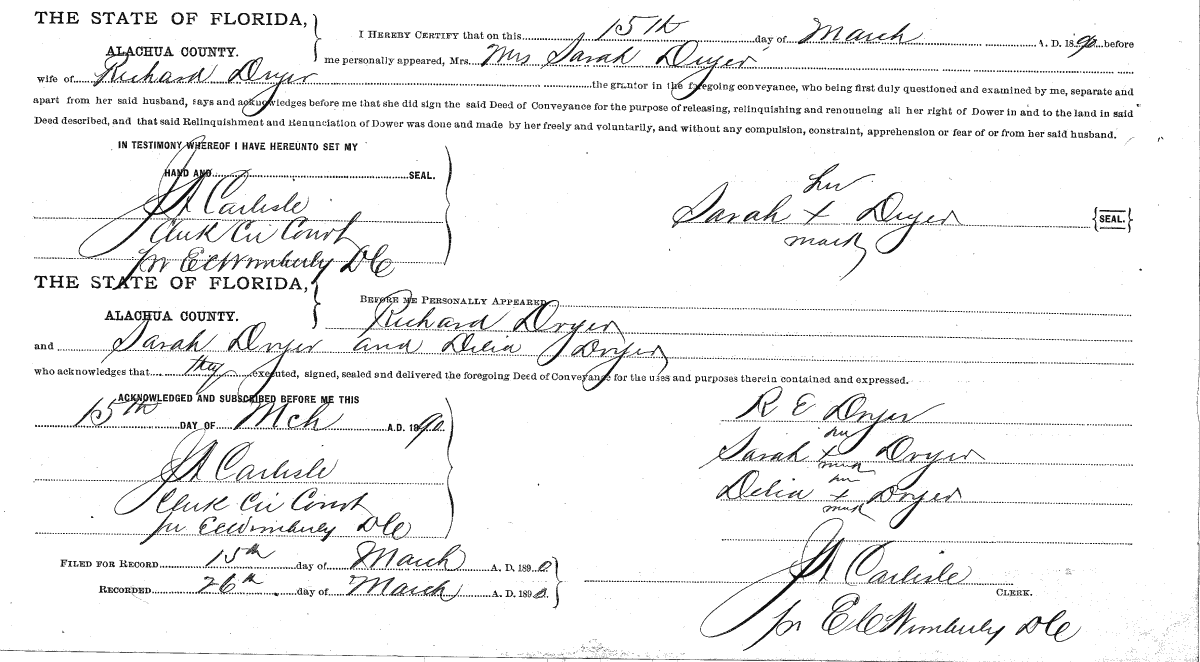 THE STATE OF FLORIDA,
ALACHUA COUNTY.
I HEREBY CERTIFY that on this 15th day of March A. D. 1890 before
me personally appeared, Mrs. Mrs Sarah Dryer
wife of Richard Dryer the grantor in the foregoing conveyance, who being first duly questioned and examined by me, separate and
apart from her said husband, says and acknowledges before me that she did sign the said Deed of Conveyance for the purpose of releasing, relinquishing and renouncing all her right of Dower in and to the land in said
Deed described, and that said Relinquishment and Renunciation of Dower was done and made by her freely and voluntarily, and without any compulsion, constraint, apprehension or fear of or from her said husband.
IN TESTIMONY WHEREOF I HAVE HEREUNTO SET MY
HAND AND SEAL.
Carlisle
Clerk Cir Court
pr E C Wimberly DC
her
Sarah X Dryer {SEAL.}
mark
THE STATE OF FLORIDA,
ALACHUA COUNTY.
BEFORE ME PERSONALLY APPEARED
Richard Dryer
and Sarah Dryer and Delia Dryer
who acknowledges that they executed, signed, sealed and delivered the foregoing Deed of Conveyance for the uses and purposes therein contained and expressed.
ACKNOWLEDGED AND SUBSCRIBED BEFORE ME THIS
15th DAY OF Mch A.D. 1890.
Carlisle
Clerk Cir Court
pr E C Wimberly DC
R E Dryer
her
Sarah X Dryer
mark
her
Delia X Dryer
mark
FILED FOR RECORD 15th day of March A. D. 1890.
RECORDED 26th day of March A. D. 1890.
Carlisle
CLERK.
pr E C Wimberly DC